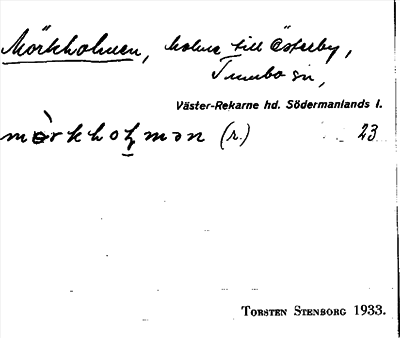 Mörkholmen, holme till Österby,
Tumbo sn,
Väster-Rekarne hd. Södermanlands l.
mòrkholmən (r.) 23
TORSTEN STENBORG 1933.